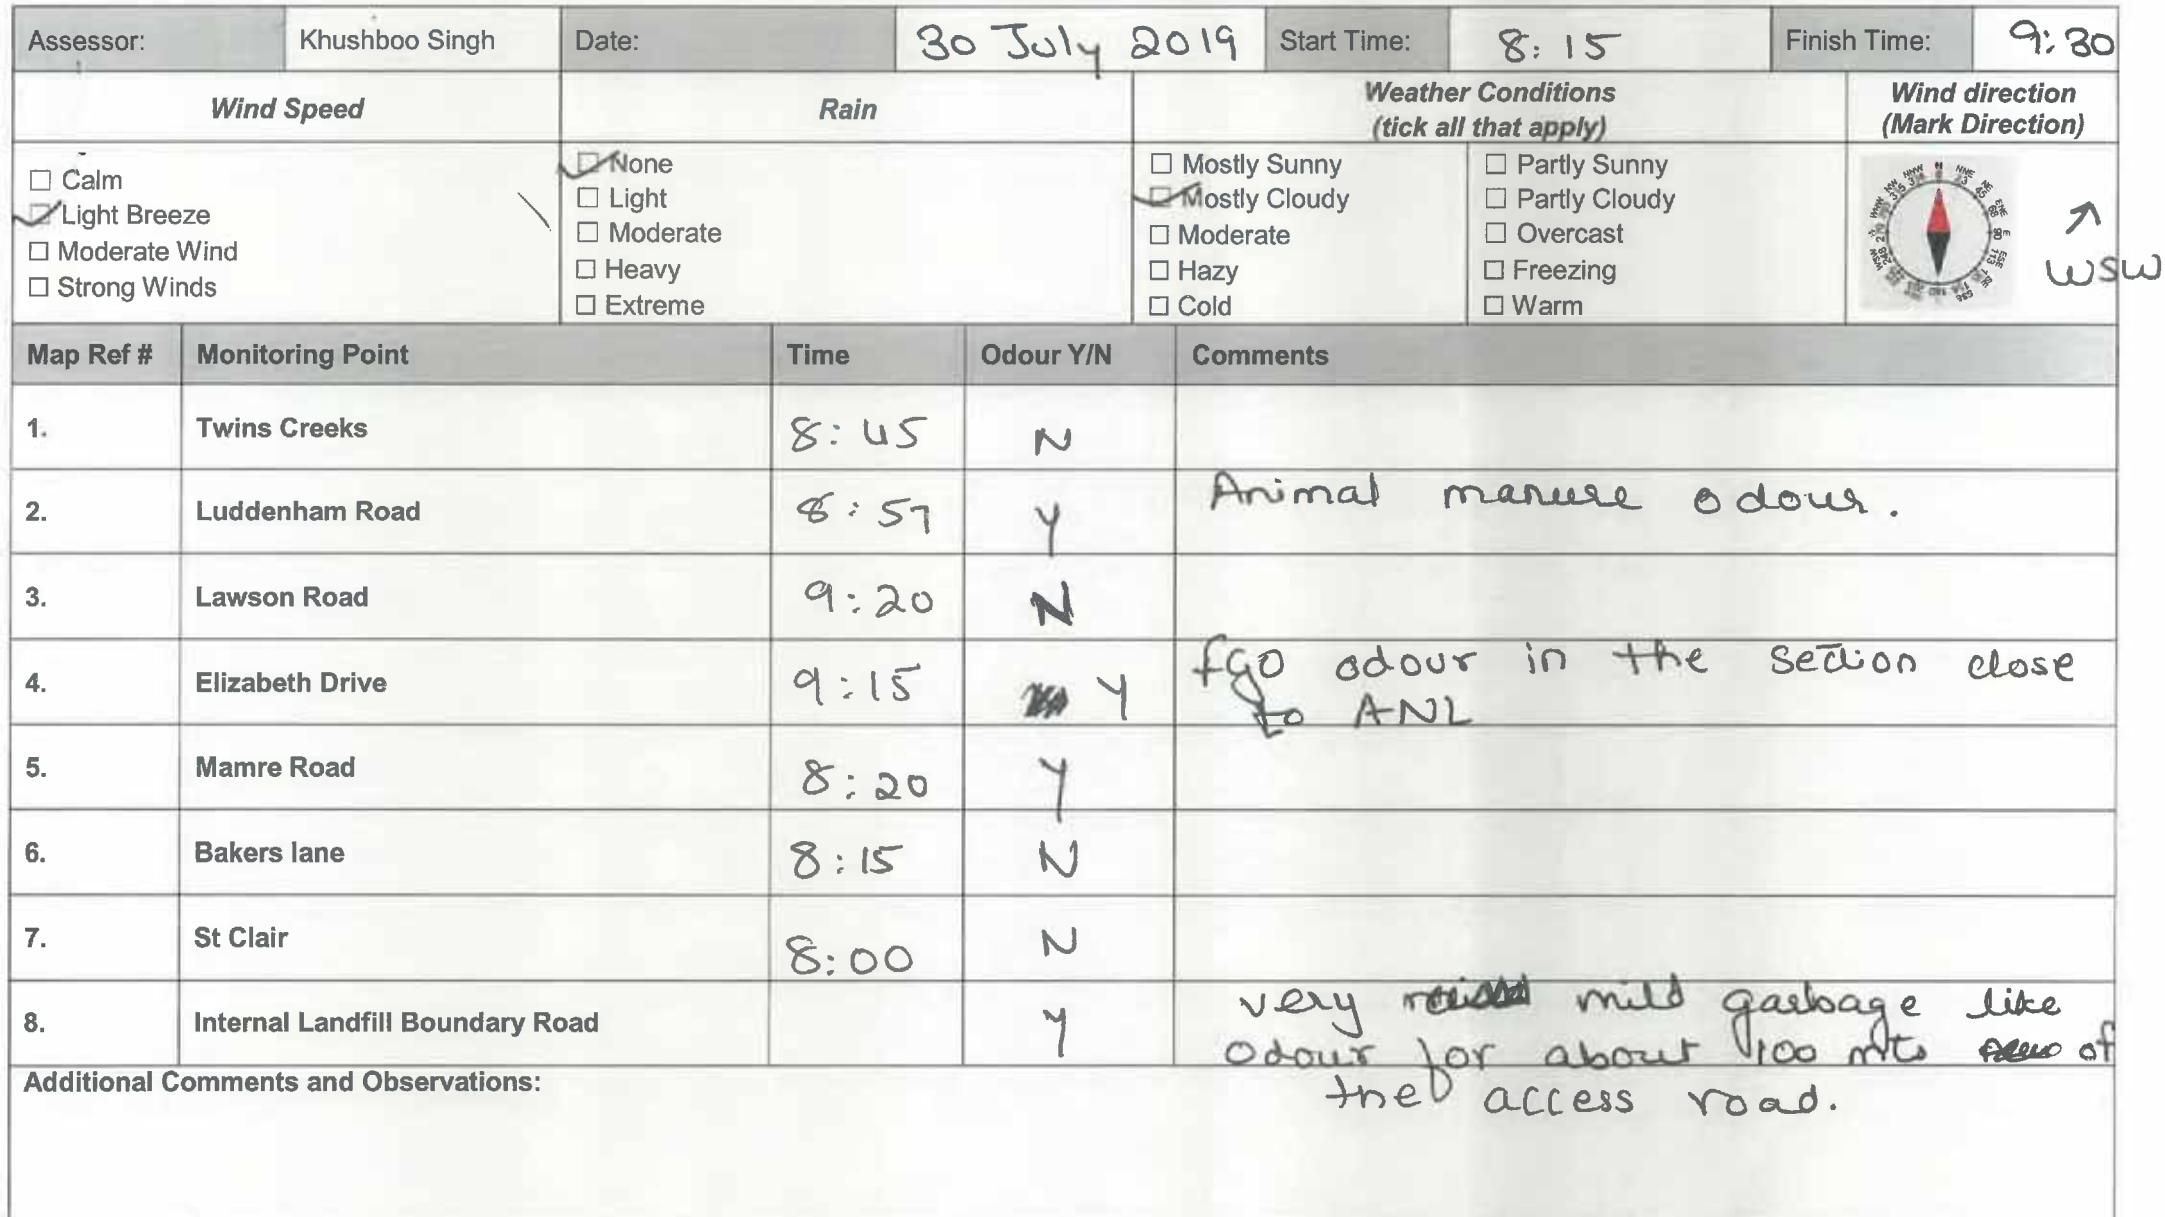 Assessor: Khushboo Singh Date: 30 July 2019 Start Time: 8:15 Finish Time: 9:30
Wind Speed Rain Weather Conditions (tick all that apply) Wind direction (Mark Direction)
☐ Calm
☑ Light Breeze
☐ Moderate Wind
☐ Strong Winds
☑ None
☐ Light
☐ Moderate
☐ Heavy
☐ Extreme
☐ Mostly Sunny
☑ Mostly Cloudy
☐ Moderate
☐ Hazy
☐ Cold
☐ Partly Sunny
☐ Partly Cloudy
☐ Overcast
☐ Freezing
☐ Warm
↗
WSW
Map Ref # Monitoring Point Time Odour Y/N Comments
1. Twins Creeks 8:45 N
2. Luddenham Road 8:57 Y Animal manure odour.
3. Lawson Road 9:20 N
4. Elizabeth Drive 9:15 Y fgo odour in the section close
to ANL
5. Mamre Road 8:20 Y
6. Bakers lane 8:15 N
7. St Clair 8:00 N
8. Internal Landfill Boundary Road Y very mild garbage like
odour for about 100 mts of
the access road.
Additional Comments and Observations: